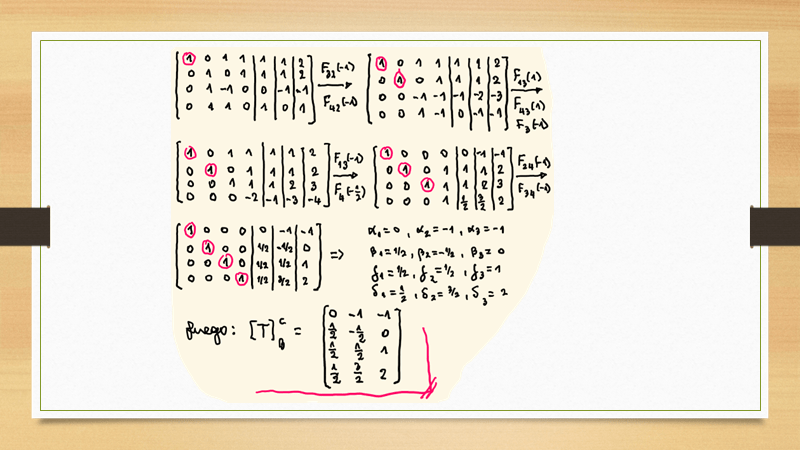 1 0 1 1 | 1 | 1 | 2
0 1 0 1 | 1 | 1 | 2
0 1 -1 0 | 0 | -1 | -1
0 1 1 0 | 1 | 0 | 1
F₃₂(-1)
F₄₂(-1)
1 0 1 1 | 1 | 1 | 2
0 1 0 1 | 1 | 1 | 2
0 0 -1 -1 | -1 | -2 | -3
0 0 1 -1 | 0 | -1 | -1
F₁₃(1)
F₄₃(1)
F₃(-1)
1 0 1 1 | 1 | 1 | 2
0 1 0 1 | 1 | 1 | 2
0 0 1 1 | 1 | 2 | 3
0 0 0 -2 | -1 | -3 | -4
F₁₃(-1)
F₄(-1/2)
1 0 0 0 | 0 | -1 | -1
0 1 0 1 | 1 | 1 | 2
0 0 1 1 | 1 | 2 | 3
0 0 0 1 | 1/2 | 3/2 | 2
F₂₄(-1)
F₃₄(-1)
1 0 0 0 | 0 | -1 | -1
0 1 0 0 | 1/2 | -1/2 | 0
0 0 1 0 | 1/2 | 1/2 | 1
0 0 0 1 | 1/2 | 3/2 | 2
=>
α₁=0, α₂=-1, α₃=-1
β₁=1/2, β₂=-1/2, β₃=0
γ₁=1/2, γ₂=1/2, γ₃=1
δ₁=1/2, δ₂=3/2, δ₃=2
Luego: [T]_B^C =
0 -1 -1
1/2 -1/2 0
1/2 1/2 1
1/2 3/2 2